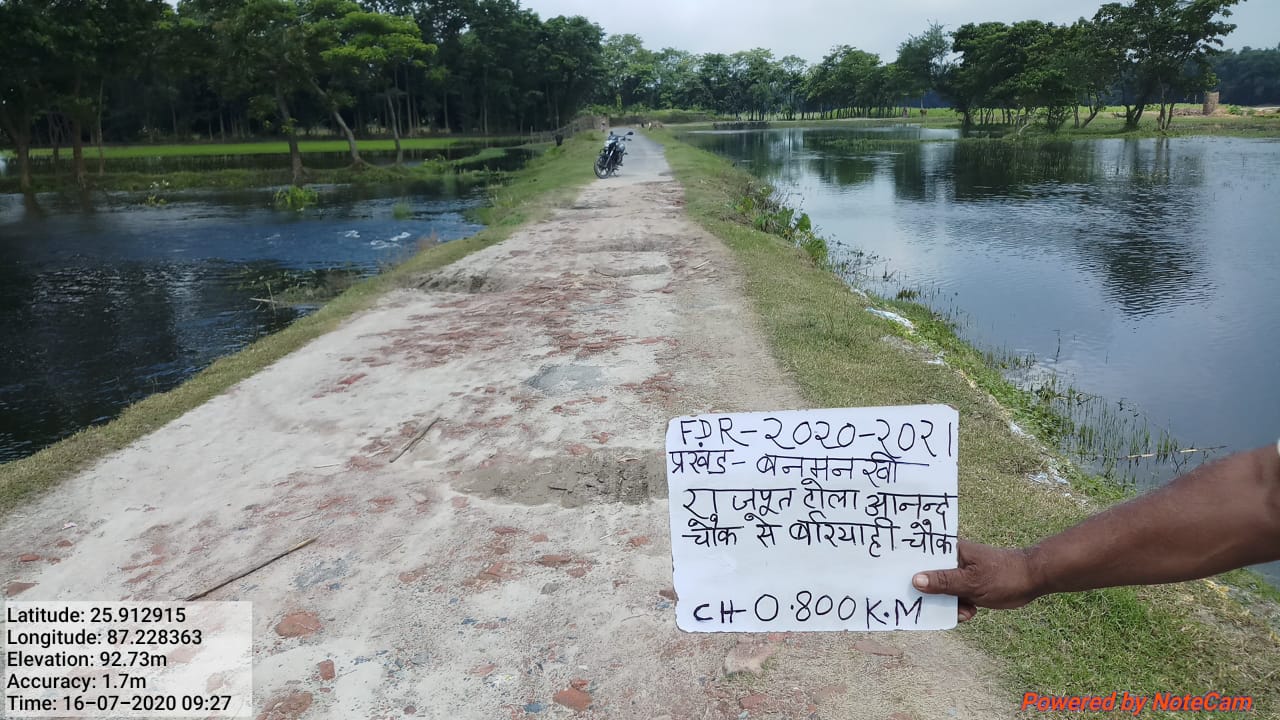 FDR-2020-2021
प्रखंड-बनमनखी
राजपूत टोला आनन्द
चौक से बरियाही चौक
CH-0.800K.M
Latitude: 25.912915
Longitude: 87.228363
Elevation: 92.73m
Accuracy: 1.7m
Time: 16-07-2020 09:27
Powered by NoteCam